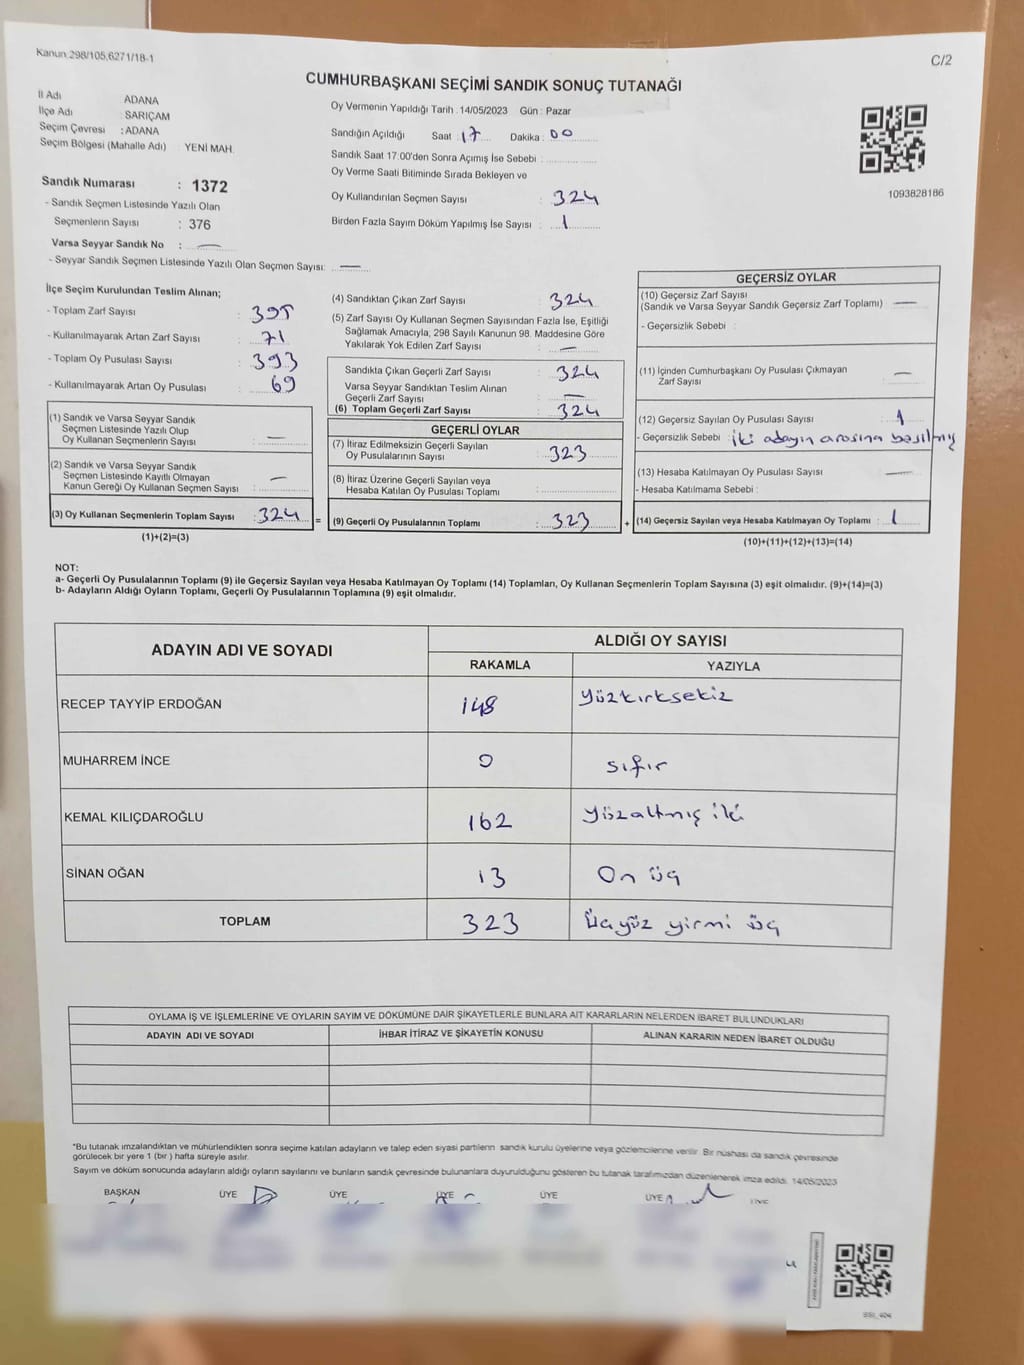 Kanun 298/105,6271/18-1
C/2
CUMHURBAŞKANI SEÇİMİ SANDIK SONUÇ TUTANAĞI
İl Adı ADANA
İlçe Adı : SARIÇAM
Seçim Çevresi : ADANA
Seçim Bölgesi (Mahalle Adı) : YENİ MAH.
Sandık Numarası : 1372
- Sandık Seçmen Listesinde Yazılı Olan
Seçmenlerin Sayısı : 376
Varsa Seyyar Sandık No : —
- Seyyar Sandık Seçmen Listesinde Yazılı Olan Seçmen Sayısı: —
Oy Vermenin Yapıldığı Tarih : 14/05/2023 Gün : Pazar
Sandığın Açıldığı Saat : 17 Dakika : 00
Sandık Saat 17:00'den Sonra Açımış İse Sebebi :
Oy Verme Saati Bitiminde Sırada Bekleyen ve
Oy Kullandırılan Seçmen Sayısı : 324
Birden Fazla Sayım Döküm Yapılmış İse Sayısı : 1
1093828186
İlçe Seçim Kurulundan Teslim Alınan;
- Toplam Zarf Sayısı : 395
- Kullanılmayarak Artan Zarf Sayısı : 71
- Toplam Oy Pusulası Sayısı : 393
- Kullanılmayarak Artan Oy Pusulası : 69
(1) Sandık ve Varsa Seyyar Sandık
Seçmen Listesinde Yazılı Olup
Oy Kullanan Seçmenlerin Sayısı : —
(2) Sandık ve Varsa Seyyar Sandık
Seçmen Listesinde Kayıtlı Olmayan
Kanun Gereği Oy Kullanan Seçmen Sayısı : —
(3) Oy Kullanan Seçmenlerin Toplam Sayısı : 324 =
(1)+(2)=(3)
(4) Sandıktan Çıkan Zarf Sayısı : 324
(5) Zarf Sayısı Oy Kullanan Seçmen Sayısından Fazla İse, Eşitliği
Sağlamak Amacıyla, 298 Sayılı Kanunun 98. Maddesine Göre
Yakılarak Yok Edilen Zarf Sayısı : —
Sandıkta Çıkan Geçerli Zarf Sayısı : 324
Varsa Seyyar Sandıktan Teslim Alınan
Geçerli Zarf Sayısı : —
(6) Toplam Geçerli Zarf Sayısı : 324
GEÇERLİ OYLAR
(7) İtiraz Edilmeksizin Geçerli Sayılan
Oy Pusulalarının Sayısı : 323
(8) İtiraz Üzerine Geçerli Sayılan veya
Hesaba Katılan Oy Pusulası Toplamı :
(9) Geçerli Oy Pusulalarının Toplamı : 323 +
GEÇERSİZ OYLAR
(10) Geçersiz Zarf Sayısı
(Sandık ve Varsa Seyyar Sandık Geçersiz Zarf Toplamı) : —
- Geçersizlik Sebebi :
(11) İçinden Cumhurbaşkanı Oy Pusulası Çıkmayan
Zarf Sayısı : —
(12) Geçersiz Sayılan Oy Pusulası Sayısı : 1
- Geçersizlik Sebebi : iki adayın arasına basılmış
(13) Hesaba Katılmayan Oy Pusulası Sayısı : —
- Hesaba Katılmama Sebebi :
(14) Geçersiz Sayılan veya Hesaba Katılmayan Oy Toplamı : 1
(10)+(11)+(12)+(13)=(14)
NOT:
a- Geçerli Oy Pusulalarının Toplamı (9) ile Geçersiz Sayılan veya Hesaba Katılmayan Oy Toplamı (14) Toplamları, Oy Kullanan Seçmenlerin Toplam Sayısına (3) eşit olmalıdır. (9)+(14)=(3)
b- Adayların Aldığı Oyların Toplamı, Geçerli Oy Pusulalarının Toplamına (9) eşit olmalıdır.
ADAYIN ADI VE SOYADI ALDIĞI OY SAYISI
RAKAMLA YAZIYLA
RECEP TAYYİP ERDOĞAN 148 Yüzkırksekiz
MUHARREM İNCE 0 sıfır
KEMAL KILIÇDAROĞLU 162 Yüzaltmış iki
SİNAN OĞAN 13 On üç
TOPLAM 323 Üçyüz yirmi üç
OYLAMA İŞ VE İŞLEMLERİNE VE OYLARIN SAYIM VE DÖKÜMÜNE DAİR ŞİKAYETLERLE BUNLARA AİT KARARLARIN NELERDEN İBARET BULUNDUKLARI
ADAYIN ADI VE SOYADI İHBAR İTİRAZ VE ŞİKAYETİN KONUSU ALINAN KARARIN NEDEN İBARET OLDUĞU
*Bu tutanak imzalandıktan ve mühürlendikten sonra seçime katılan adayların ve talep eden siyasi partilerin sandık kurulu üyelerine veya gözlemcilerine verilir. Bir nüshası da sandık çevresinde
görülecek bir yere 1 (bir ) hafta süreyle asılır.
Sayım ve döküm sonucunda adayların aldığı oyların sayılarını ve bunların sandık çevresinde bulunanlara duyurulduğunu gösteren bu tutanak tarafımızdan düzenlenerek imza edildi. 14/05/2023
BAŞKAN ÜYE ÜYE ÜYE ÜYE ÜYE